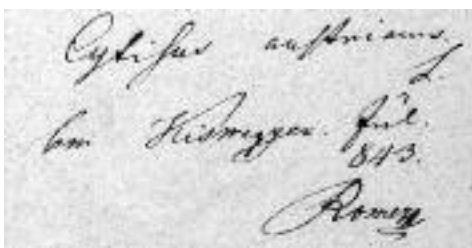 Cytisus austriacus
L.
bm Kiswegger. Jul.
843.
Romer